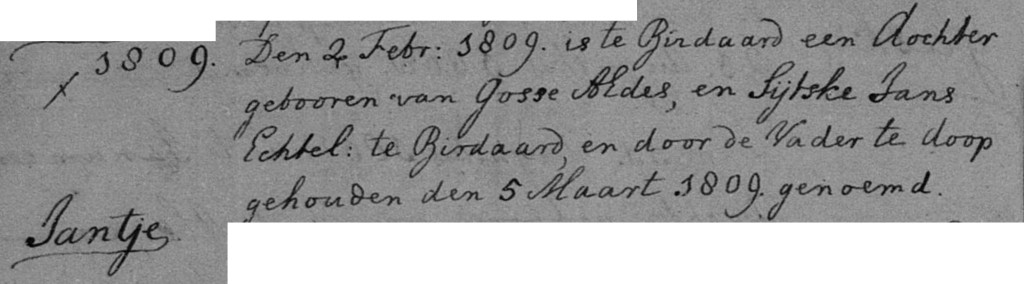 1809. Den 2 Febr: 1809. is te Birdaard een dochter
gebooren van Gosse Aldes, en Sijtske Jans
Echtel: te Birdaard, en door de Vader te doop
gehouden den 5 Maart 1809. genoemd.
Jantje